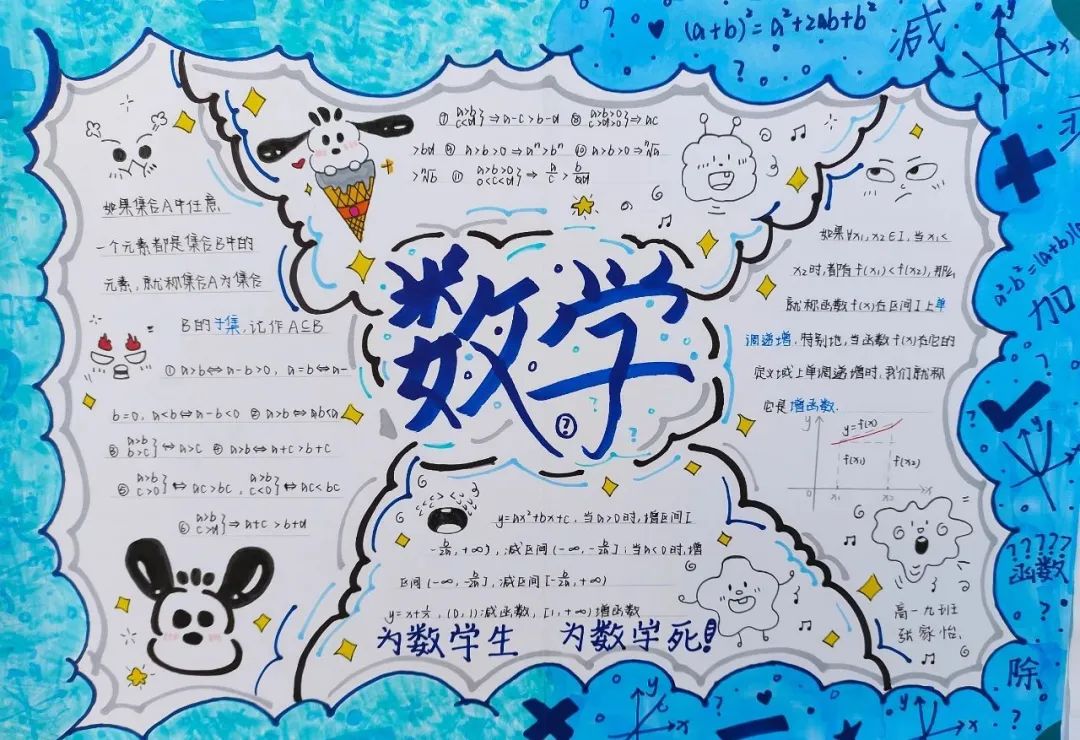 (a+b)²=a²+2ab+b²
减
如果集合A中任意
一个元素都是集合B中的
元素，就称集合A为集合
B的子集，记作A⊆B
①a>b⇔a-b>0，a=b⇔a-
b=0，a<b⇔a-b<0 ②a>b⇔b<a
③a>b b>c}⇔a>c ④a>b⇔a+c>b+c
⑤a>b c>0}⇔ac>bc，a>b c<0}⇔ac<bc
⑥a>b c>d}⇒a+c>b+d
⑦a>b c<d}⇒a-c>b-d ⑧a>b>0 c>d>0}⇒ac
>bd ⑨a>b>0⇒aⁿ>bⁿ ⑩a>b>0⇒ⁿ√a
>ⁿ√b ⑪
数学
?
如果∀x₁,x₂∈I，当x₁<
x₂时，都有f(x₁)<f(x₂)，那么
就称函数f(x)在区间I上单
调递增．特别地，当函数f(x)在它的
定义域上单调递增时，我们就称
它是增函数．
y
y=f(x)
f(x₁) f(x₂)
0 x₁ x₂ x
y=ax²+bx+c，当a>0时，增区间[
-b/2a,+∞)，减区间(-∞,-b/2a]；当a<0时，增
区间(-∞,-b/2a]，减区间[-b/2a,+∞)
y=x+1/x，(0,1)减函数，[1,+∞)增函数
为数学生 为数学死！
高一九班
张家怡．
y
x
a²-b²=(a+b)(a
加
?????
函数
?
除
?
y
x
y
x